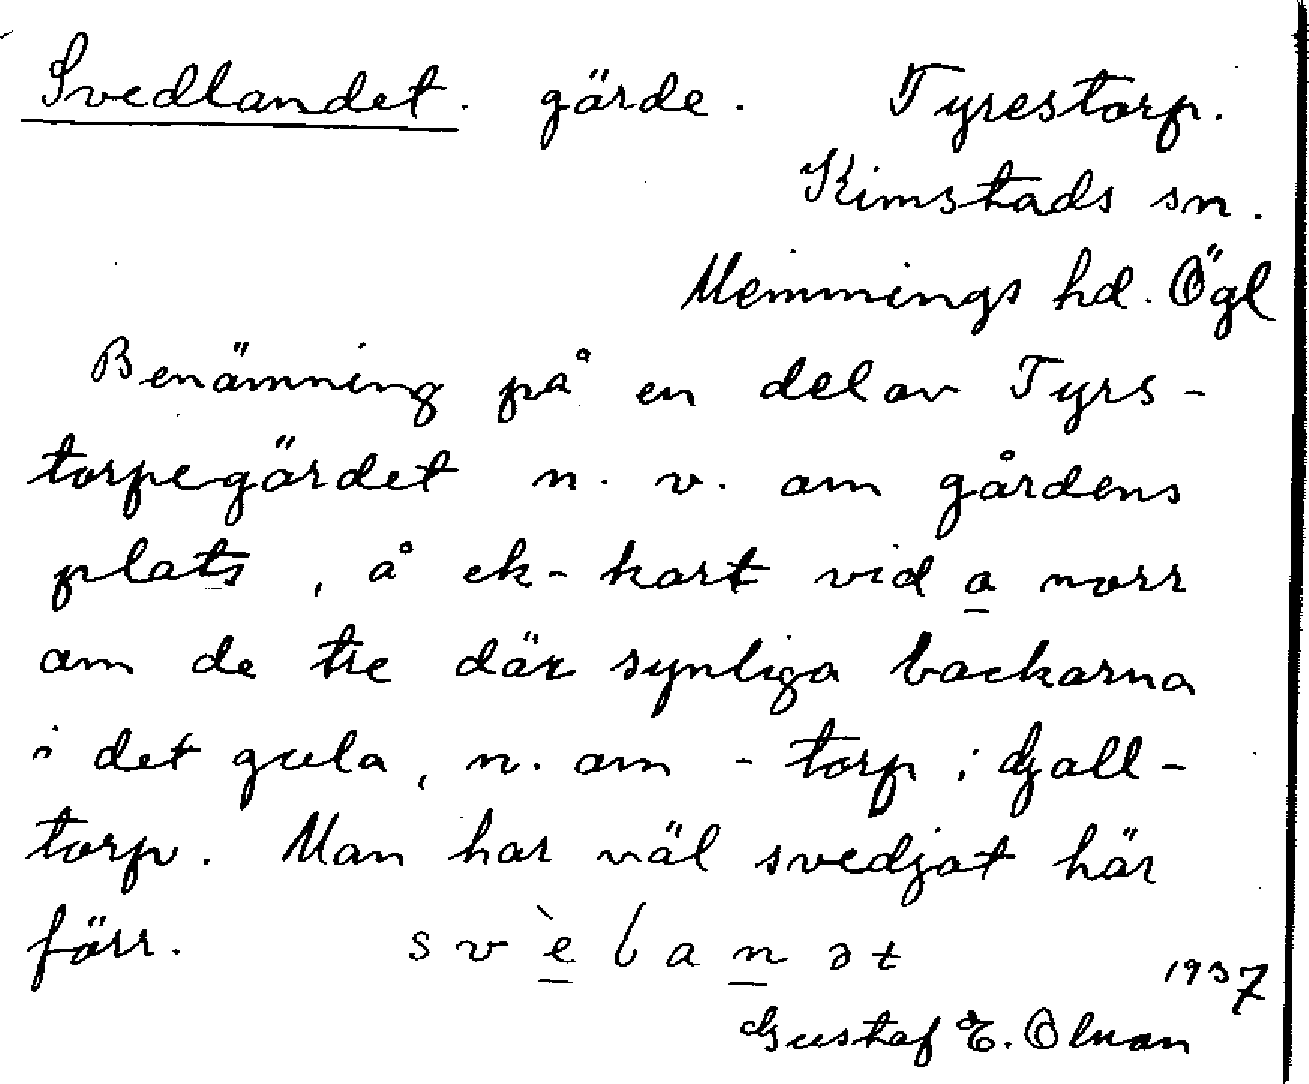 Svedlandet. gärde. Tyrestorp.
Kimstads sn.
Memmings hd. Ögl
Benämning på en del av Tyrs-
torpegärdet n. v. om gårdens
plats, å ek-kart vid a norr
om de tre där synliga backarna
i det gula, n. om - torp i Djall-
torp. Man har väl svedjat här
förr. svèlanət
1937
Gustaf E. Olman